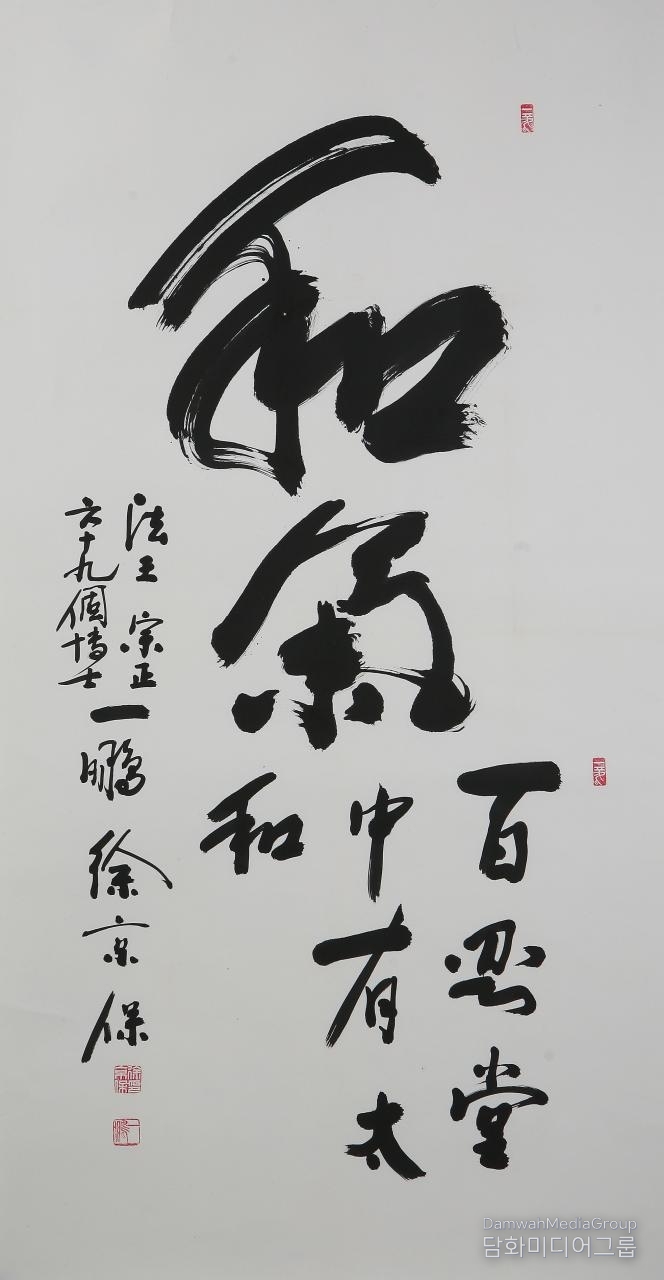 和氣
百忍堂
中有太
和
法王 宗正
六十九個博士
一鵬 徐京保
DamwanMediaGroup
담화미디어그룹